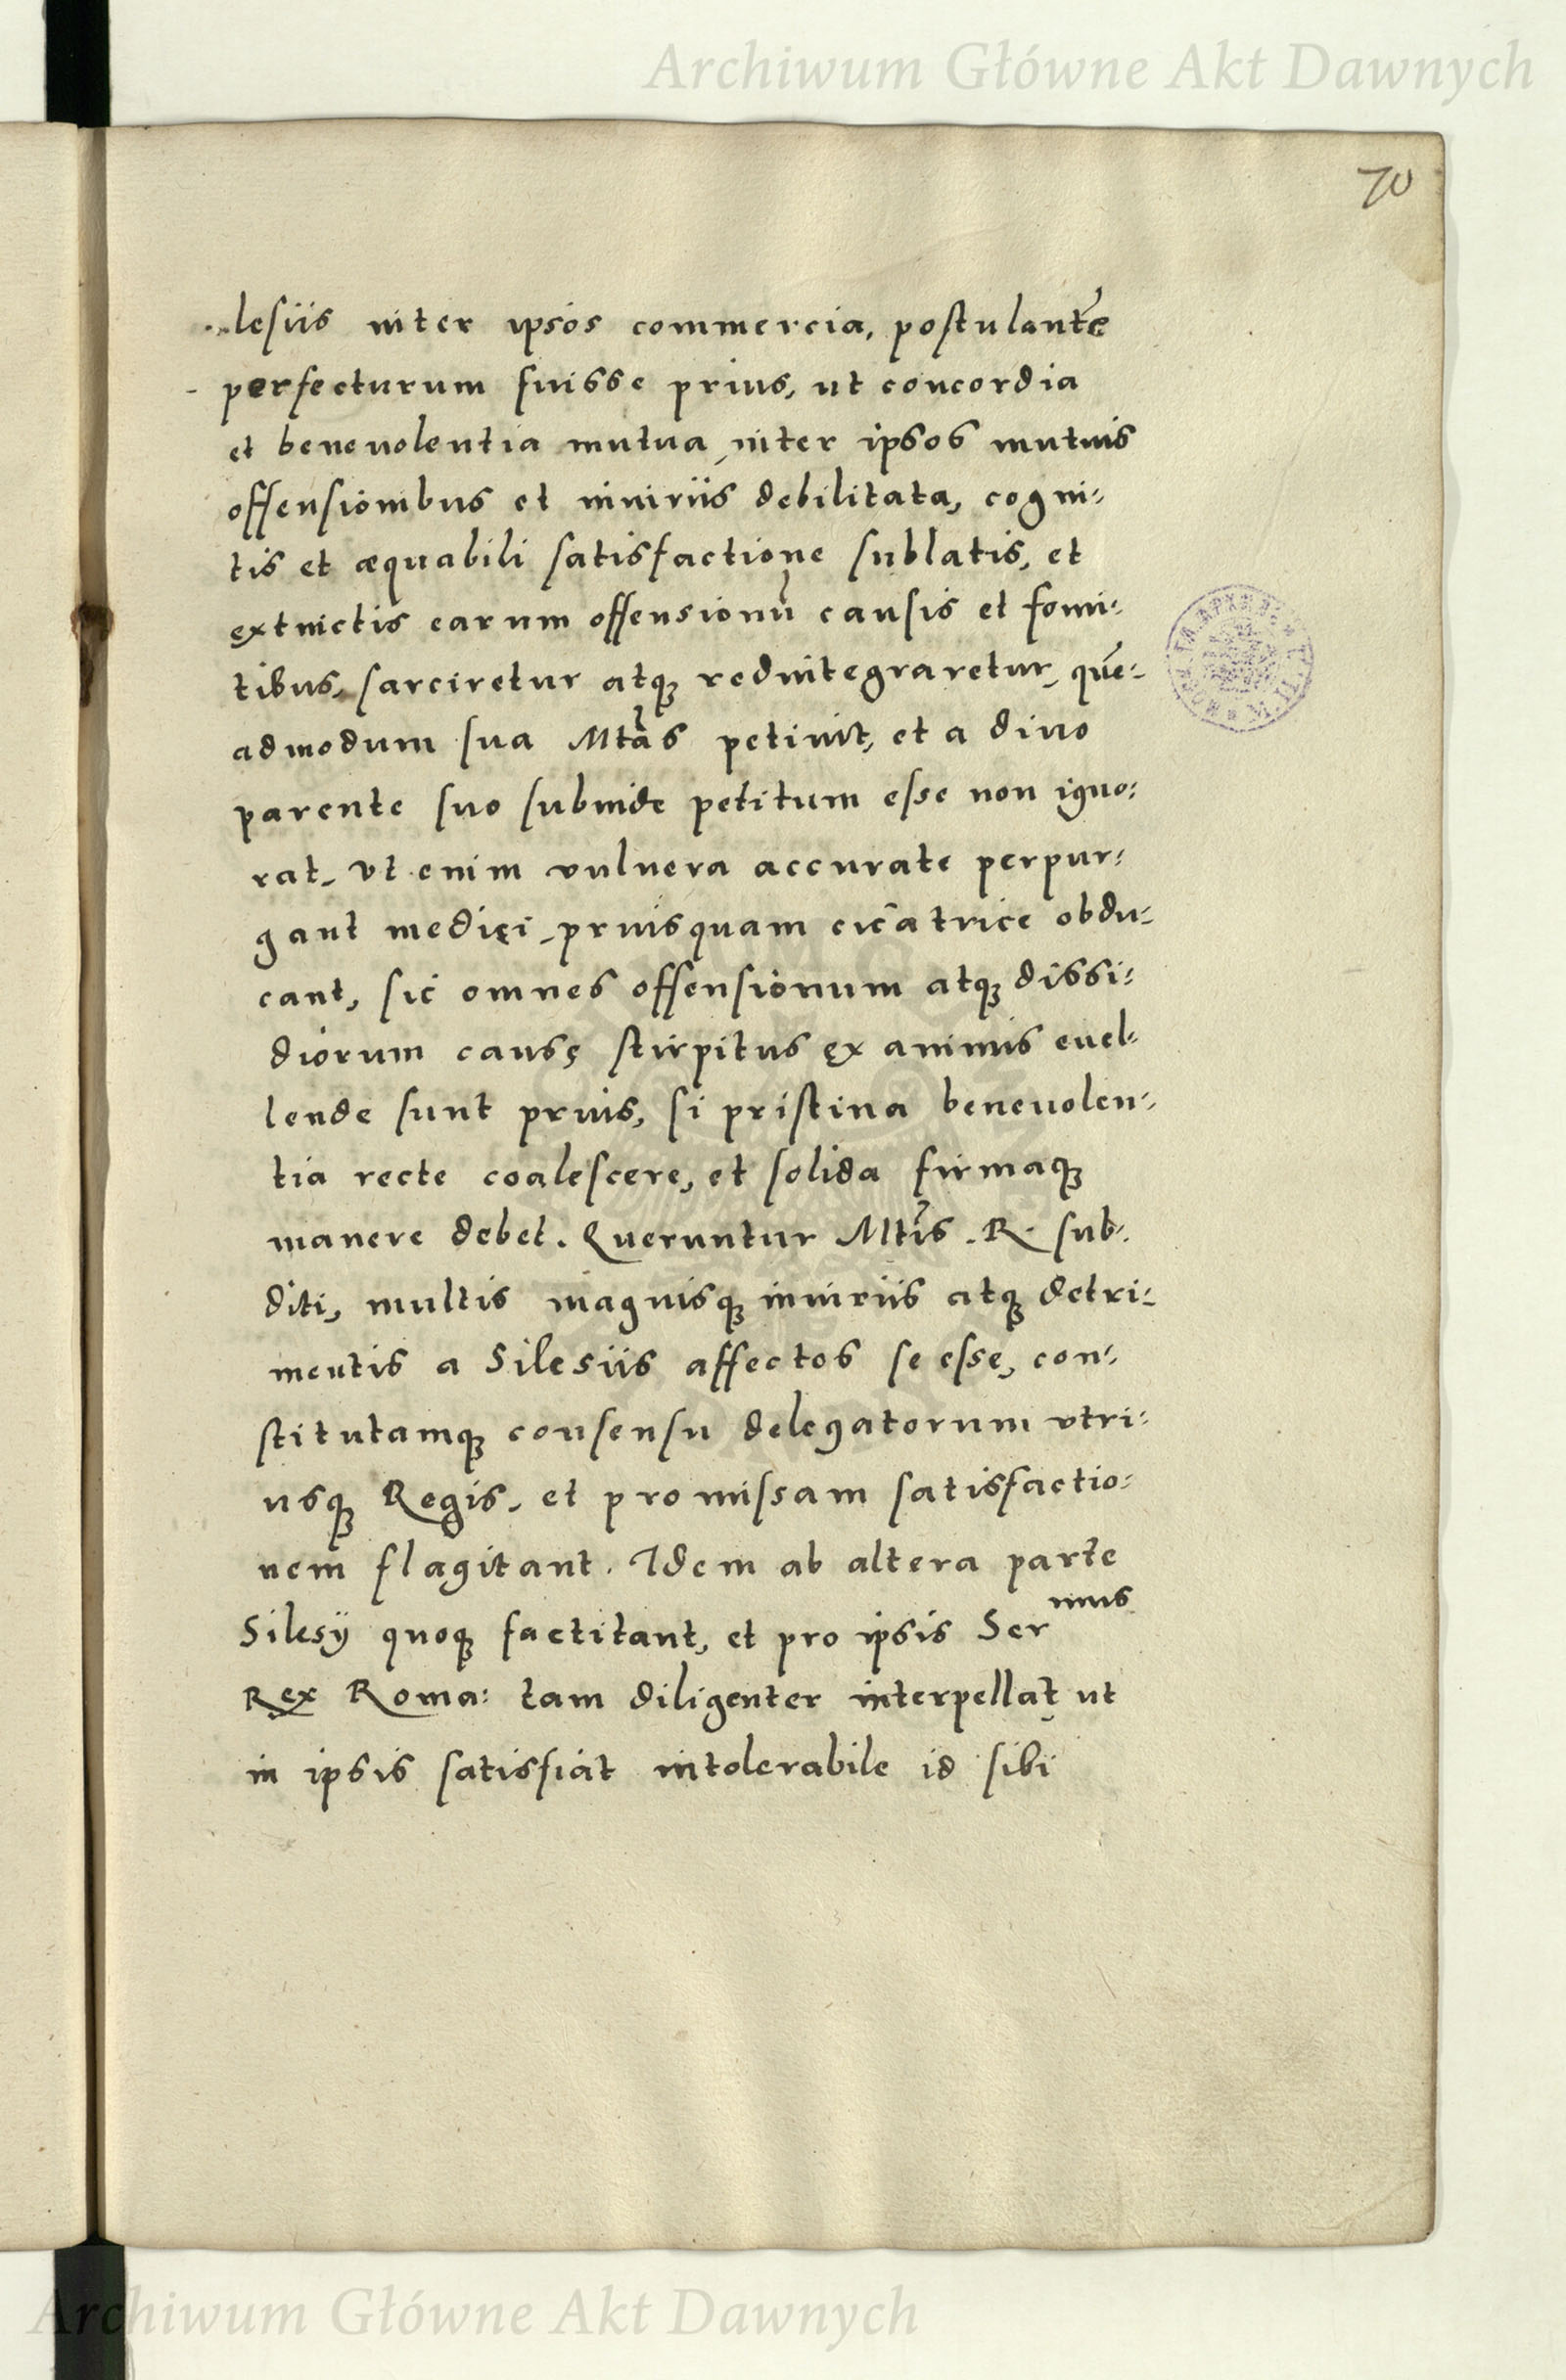 Archiwum Główne Akt Dawnych
70
lesiis inter ipsos commercia, postulante
perfecturum fuisse prius, ut concordia
et beneuolentia mutua, inter ipsos mutuis
offensionibus et iniuriis debilitata, cogni-
tis et æquabili satisfactione sublatis, et
extinctis earum offensionũ causis et fomi-
tibus, sarciretur atq; redintegraretur, quẽ-
admodum sua Mtãs petiuit, et a diuo
parente suo subinde petitum esse non igno-
rat, Vt enim vulnera accurate perpur-
gant medici, priusquam cicatrice obdu-
cant, sic omnes offensionum atq; dissi-
diorum causę stirpitus ex animis euel-
lende sunt prius, si pristina beneuolen-
tia recte coalescere, et solida firmaq;
manere debet. Queruntur Mtĩs. R. sub-
diti, multis magnisq; iniuriis atq; detri-
mentis a Silesiis affectos se esse, con-
stitutamq; consensu delegatorum vtri-
usq; Regis, et promissam satisfactio-
nem flagitant. Idem ab altera parte
Silesij quoq; factitant, et pro ipsis Ser mus
Rex Roma: tam diligenter interpellat, ut
in ipsis satisfiat intolerabile id sibi
Archiwum Główne Akt Dawnych